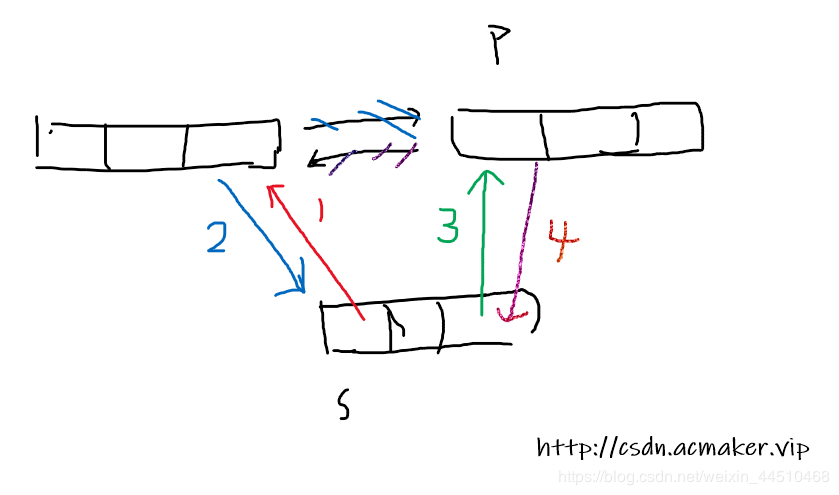 P
1
2
3
4
S
http://csdn.acmaker.vip
https://blog.csdn.net/weixin_44510468